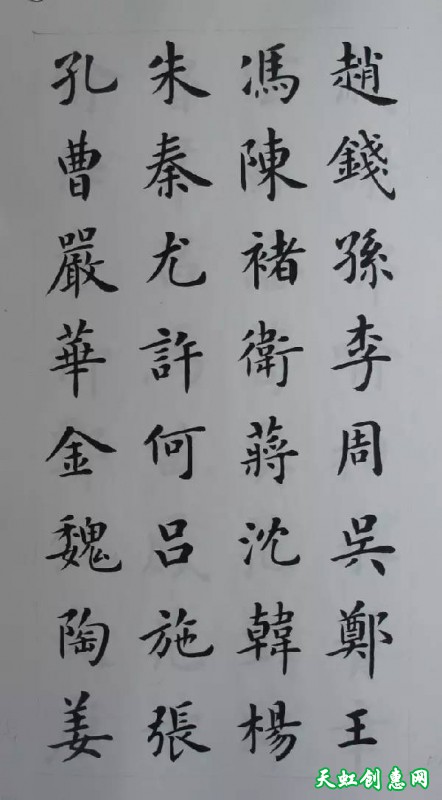 趙錢孫李周吳鄭王
馮陳褚衛蔣沈韓楊
朱秦尤許何呂施張
孔曹嚴華金魏陶姜
天虹创惠网